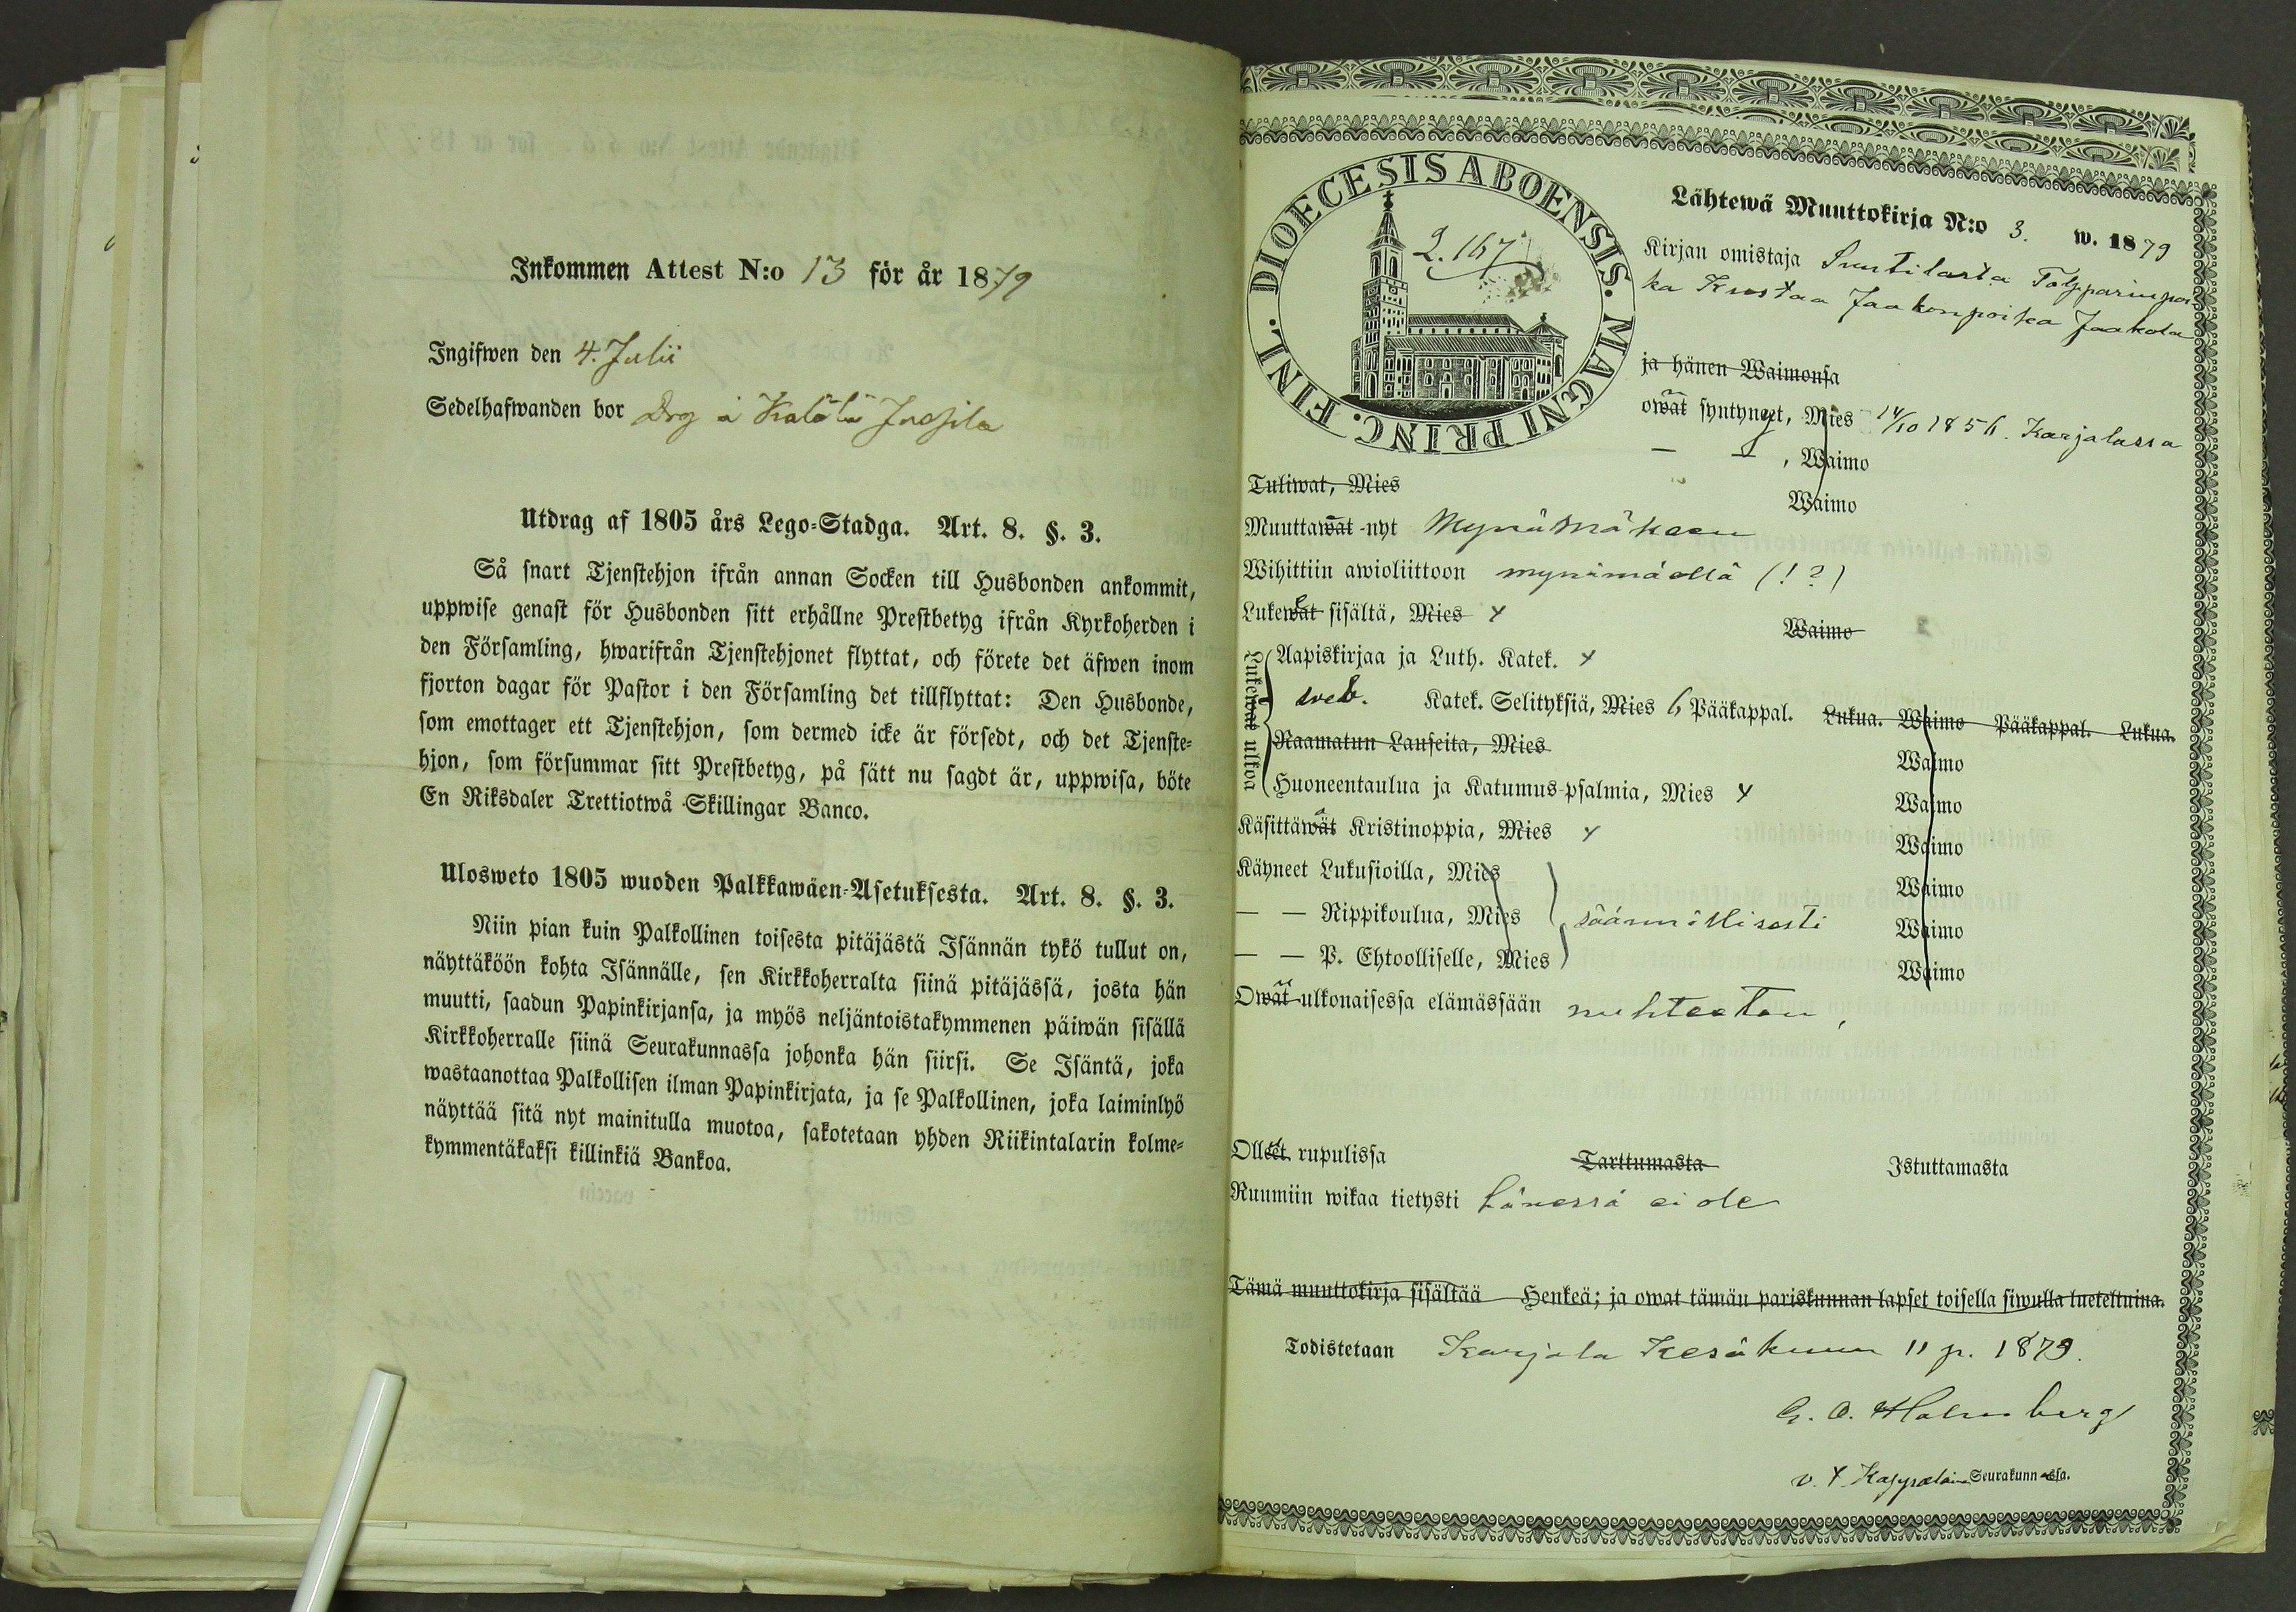 Inkommen Attest N:o 13 för år 1879
Ingifwen den 4. Julii
Sedelhafwanden bor Drg å Kalela Juojila
Utdrag af 1805 års Lego-Stadga. Art. 8. §. 3.
Så snart Tjenstehjon ifrån annan Socken till Husbonden ankommit,
uppwise genast för Husbonden sitt erhållne Prestbetyg ifrån Kyrkoherden i
den Församling, hwarifrån Tjenstehjonet flyttat, och förete det äfwen inom
fjorton dagar för Pastor i den Församling det tillflyttat: Den Husbonde,
som emottager ett Tjenstehjon, som dermed icke är försedt, och det Tjenste-
hjon, som försummar sitt Prestbetyg, på sätt nu sagdt är, uppwisa, böte
En Riksdaler Trettiotwå Skillingar Banco.
Ulosweto 1805 wuoden Palkkawäen-Asetuksesta. Art. 8. §. 3.
Niin pian kuin Palkollinen toisesta pitäjästä Isännän tykö tullut on,
näyttäköön kohta Isännälle, sen Kirkkoherralta siinä pitäjässä, josta hän
muutti, saadun Papinkirjansa, ja myös neljäntoistakymmenen päiwän sisällä
Kirkkoherralle siinä Seurakunnassa johonka hän siirsi. Se Isäntä, joka
wastaanottaa Palkollisen ilman Papinkirjata, ja se Palkollinen, joka laiminlyö
näyttää sitä nyt mainitulla muotoa, sakotetaan yhden Riikintalarin kolme-
kymmentäkaksi killinkiä Bankoa.
DIOECESIS ABOENSIS. MAGNI PRINC. FINL.
2.167
Lähtewä Muuttokirja N:o 3. w. 1879
Kirjan omistaja Suutilasta Tolpparinpoi
ka Kustaa Jaakonpoika Jaakola
ja hänen Waimonsa
owat syntyneet, Mies 14/10 1856. Karjalassa
— — , Waimo
Tuliwat, Mies
Waimo
Muuttawat nyt Mynämäkeen
Wihittiin awioliittoon mynämäellä (!?)
Lukewat sisältä, Mies x
Waimo
Lukewat ulkoa
Aapiskirjaa ja Luth. Katek. x
Katek. Selityksiä, Mies 6 Pääkappal. Lukua. Waimo Pääkappal. Lukua.
Raamatun Lauseita, Mies
Waimo
Huoneentaulua ja Katumus-psalmia, Mies x
Waimo
Käsittäwät Kristinoppia, Mies x
Waimo
Käyneet Lukusioilla, Mies
Waimo
— — Rippikoulua, Mies säännöllisesti
Waimo
— — P. Ehtoolliselle, Mies
Waimo
Owat ulkonaisessa elämässään nuhteeton,
Olleet rupulissa Tarttumasta Istuttamasta
Ruumiin wikaa tietysti hänessä ei ole
Tämä muuttokirja sisältää Henkeä; ja owat tämän pariskunnan lapset toisella siwulla lueteltuina.
Todistetaan Karjala Kesäkuun 11 p. 1879.
G. O. Holmberg
v. t. Kappalainen Seurakunnassa.